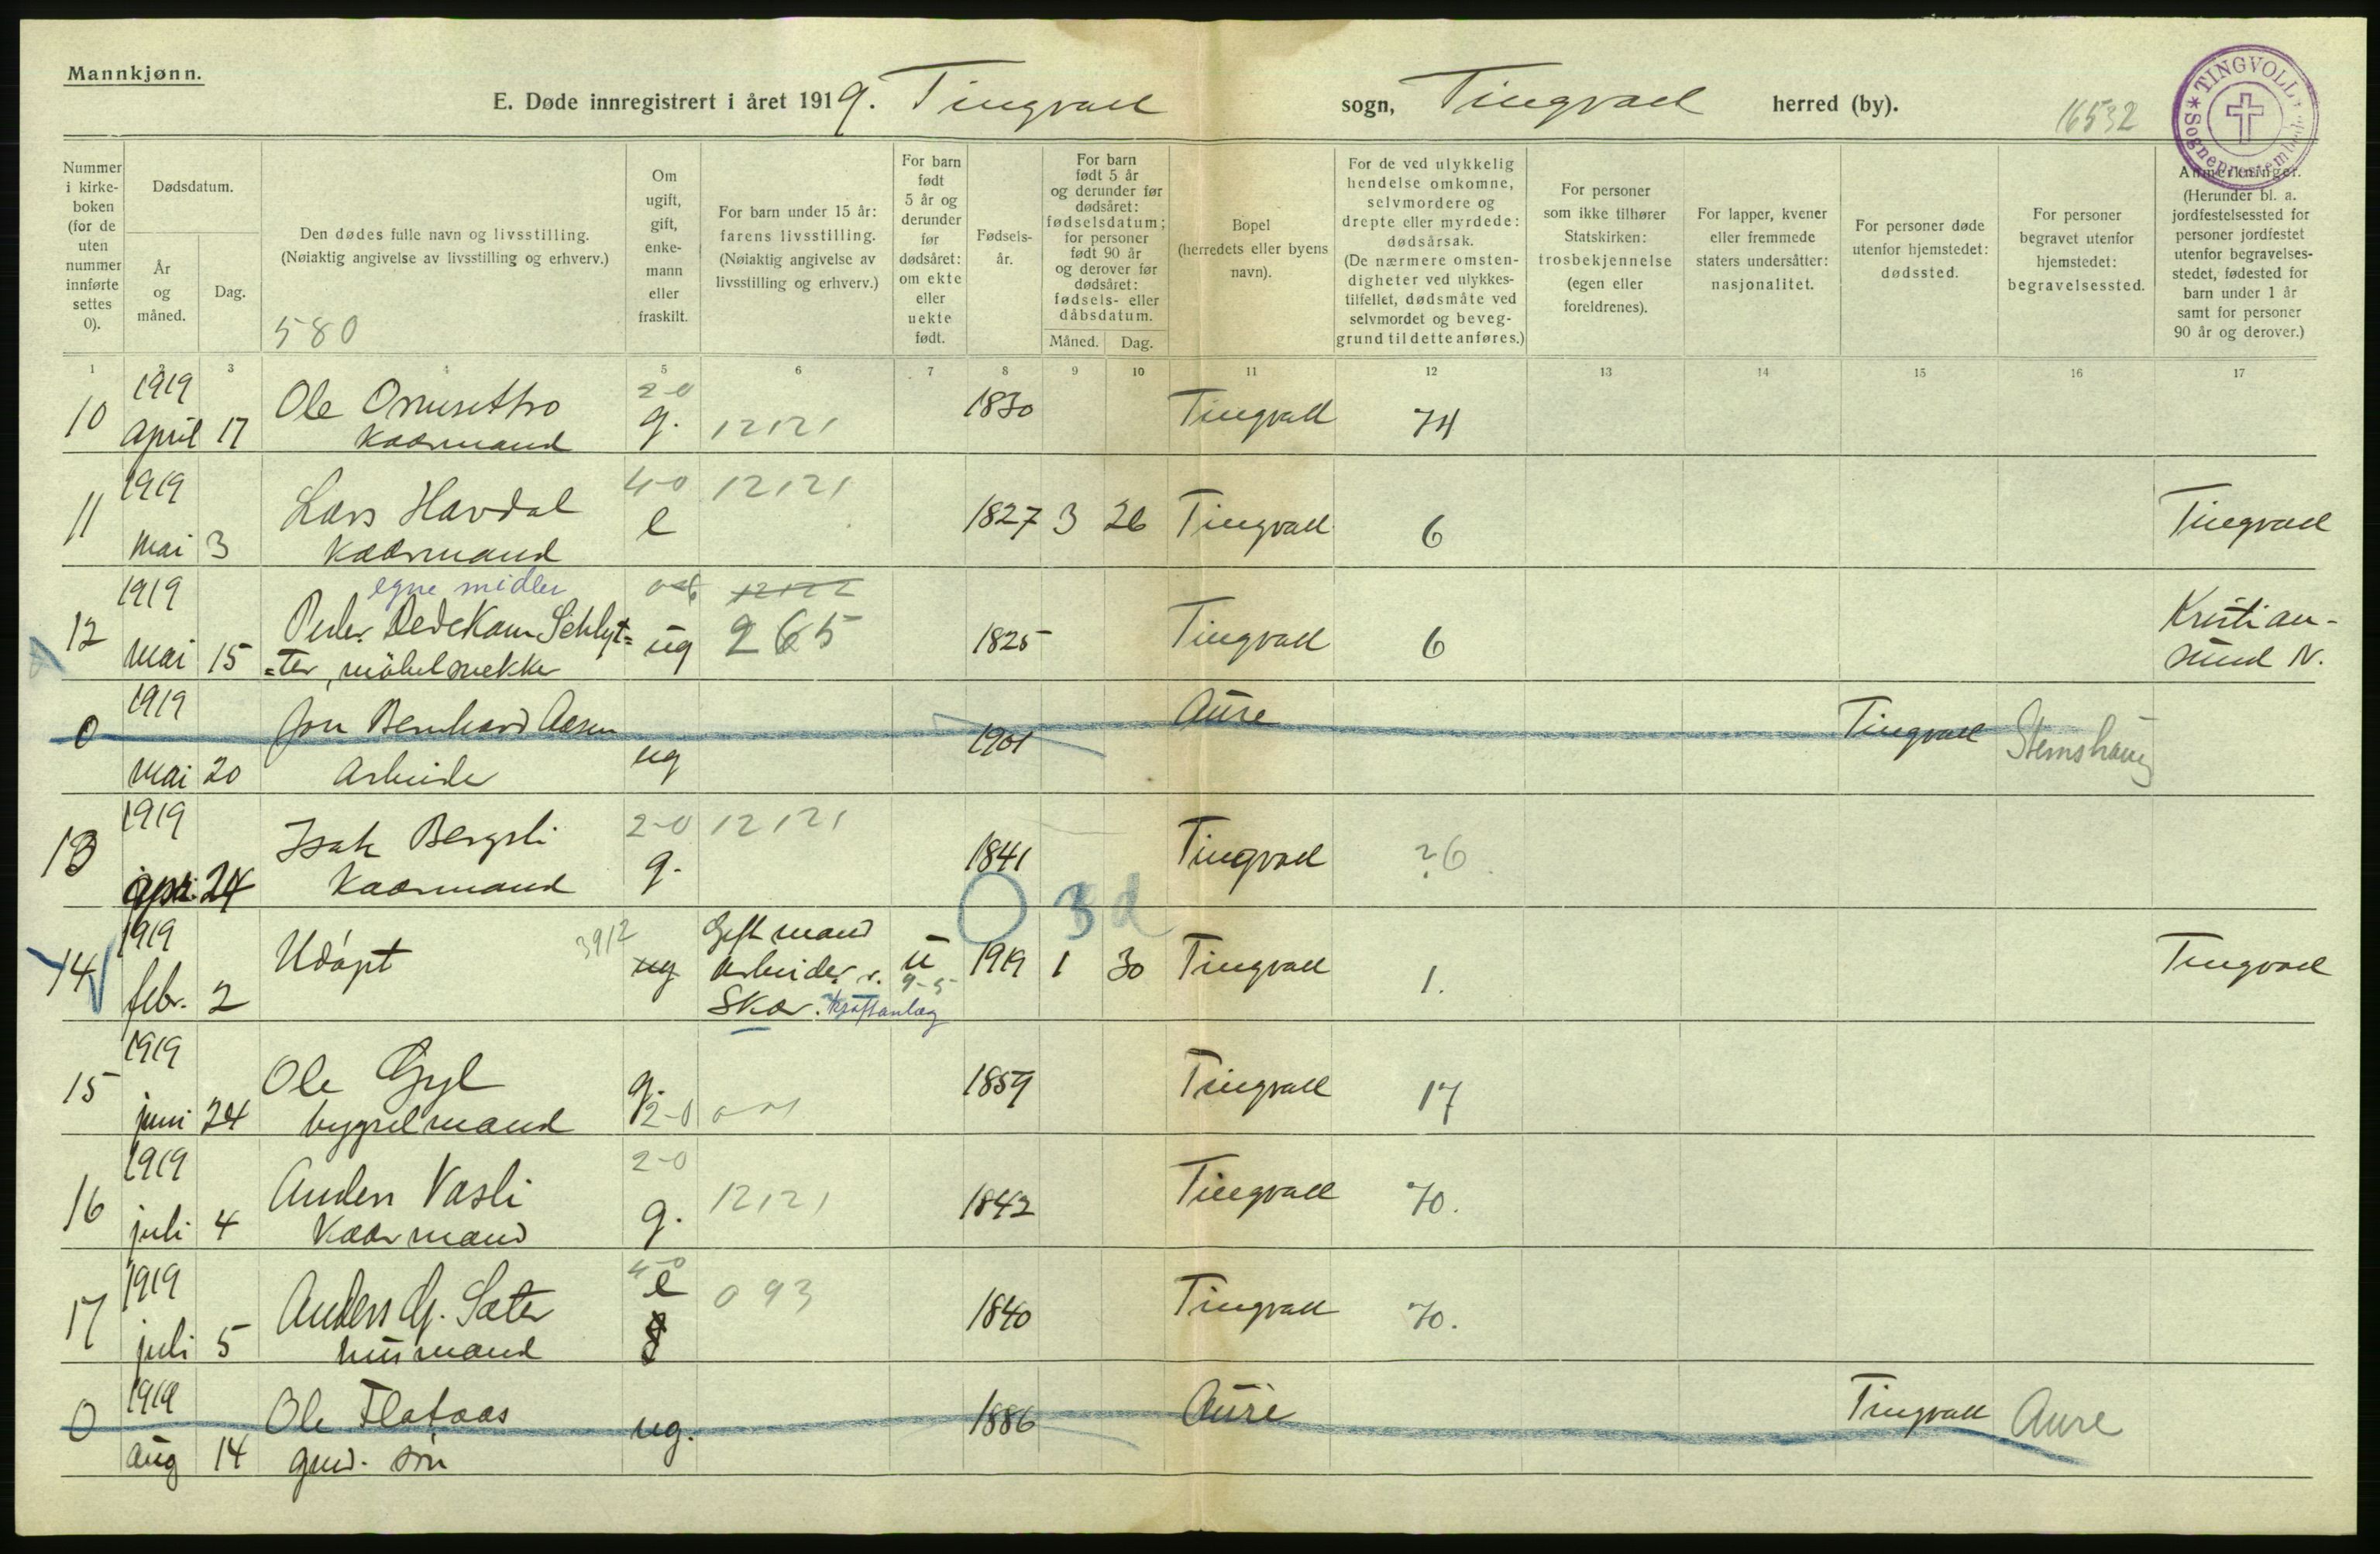 Mannkjønn.
E. Døde innregistrert i året 1919. Tingvoll sogn, Tingvoll herred (by).
16532
* TINGVOLL * Sogneprestembede
Nummer i kirke-boken (for de uten nummer innførte settes 0).
Dødsdatum.
År og måned.
Dag.
Den dødes fulle navn og livsstilling.
(Nøiaktig angivelse av livsstilling og erhverv.)
580
Om ugift, gift, enke-mann eller fraskilt.
For barn under 15 år: farens livsstilling.
(Nøiaktig angivelse av livsstilling og erhverv.)
For barn født 5 år og derunder før dødsåret: om ekte eller uekte født.
Fødsels-år.
For barn født 5 år og derunder før dødsåret: fødselsdatum; for personer født 90 år og derover før dødsåret: fødsels- eller dåbsdatum.
Måned. Dag.
Bopel (herredets eller byens navn).
For de ved ulykkelig hendelse omkomne, selvmordere og drepte eller myrdede: dødsårsak.
(De nærmere omsten-digheter ved ulykkes-tilfellet, dødsmåte ved selvmordet og beveg-grund til dette anføres.)
For personer som ikke tilhører Statskirken: trosbekjennelse (egen eller foreldrenes).
For lapper, kvener eller fremmede staters undersåtter: nasjonalitet.
For personer døde utenfor hjemstedet: dødssted.
For personer begravet utenfor hjemstedet: begravelsessted.
Anmerkninger.
(Herunder bl. a. jordfestelsessted for personer jordfestet utenfor begravelses-stedet, fødested for barn under 1 år samt for personer 90 år og derover.)
1 2 3 4 5 6 7 8 9 10 11 12 13 14 15 16 17
1919 2-0
10 april 17 Ole g. 12121 1830 Tingvoll 74
Kaarmand
1919 4-0 12121
11 mai 3 Lars Havdal e 1827 3 26 Tingvoll 6 Tingvoll
Kaarmand
1919 egne midler 12122
12 mai 15 Peder Dedekam Schlyt= ug 265 1825 Tingvoll 6 Kristian-
=ter, møbelsnekker sund N.
1919 Jon Bernhard Aasen Aure
0 mai 20 Arbeider ug 1901 Tingvoll Stemshaug
1919 2-0 12121
13 24 Isak Bergsli g. 1841 Tingvoll ?6
Kaarmand
3 d
1919 3912 Gift mand
14 febr. 2 Udøpt ug Arbeider v. u 1919 1 30 Tingvoll 1. Tingvoll
Skar kraftanlæg 9-5
1919
15 juni 24 Ole Gyl g. 1859 Tingvoll 17
bygselmand 2-0
1919 2-0
16 juli 4 Anders Vasli g. 12121 1842 Tingvoll 70.
Kaarmand
1919 4-0
17 juli 5 Anders G. Sæter e 093 1840 Tingvoll 70.
husmand
1919
0 aug 14 Ole Flataas ug. 1886 Aure Tingvoll Aure
gmd. søn